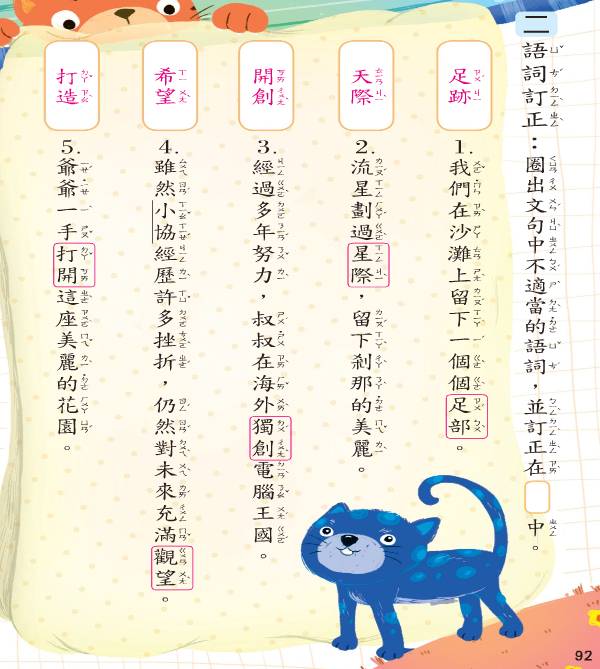 二
語詞訂正：圈出文句中不適當的語詞，並訂正在 中。
足跡
1.我們在沙灘上留下一個個足部。
天際
2.流星劃過星際，留下剎那的美麗。
開創
3.經過多年努力，叔叔在海外獨創電腦王國。
希望
4.雖然小協經歷許多挫折，仍然對未來充滿觀望。
打造
5.爺爺一手打開這座美麗的花園。
92